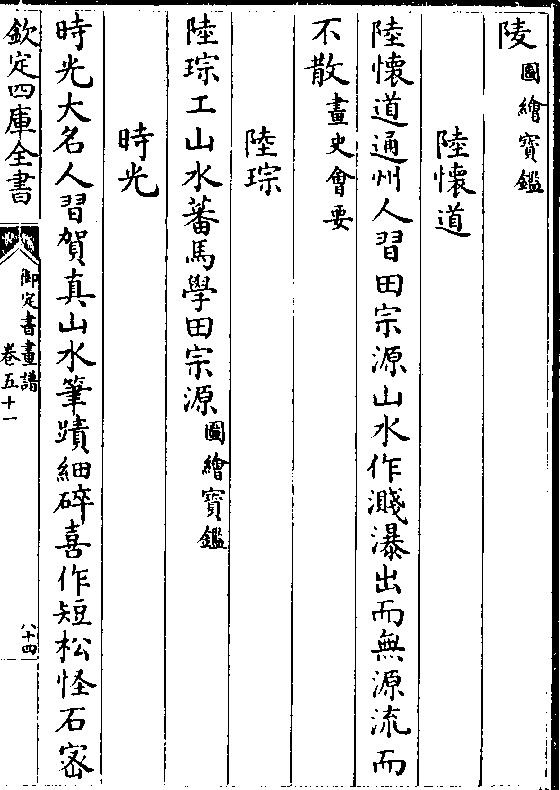 陵圖繪寶鑑
陸懷道
陸懷道通州人習田宗源山水作濺瀑出而無源流而
不散畫史會要
陸琮
陸琮工山水蕃馬學田宗源圖繪寶鑑
時光
時光大名人習賀真山水筆蹟細碎喜作短松怪石密
欽定四庫全書
御定書畫譜
卷五十一
八十四